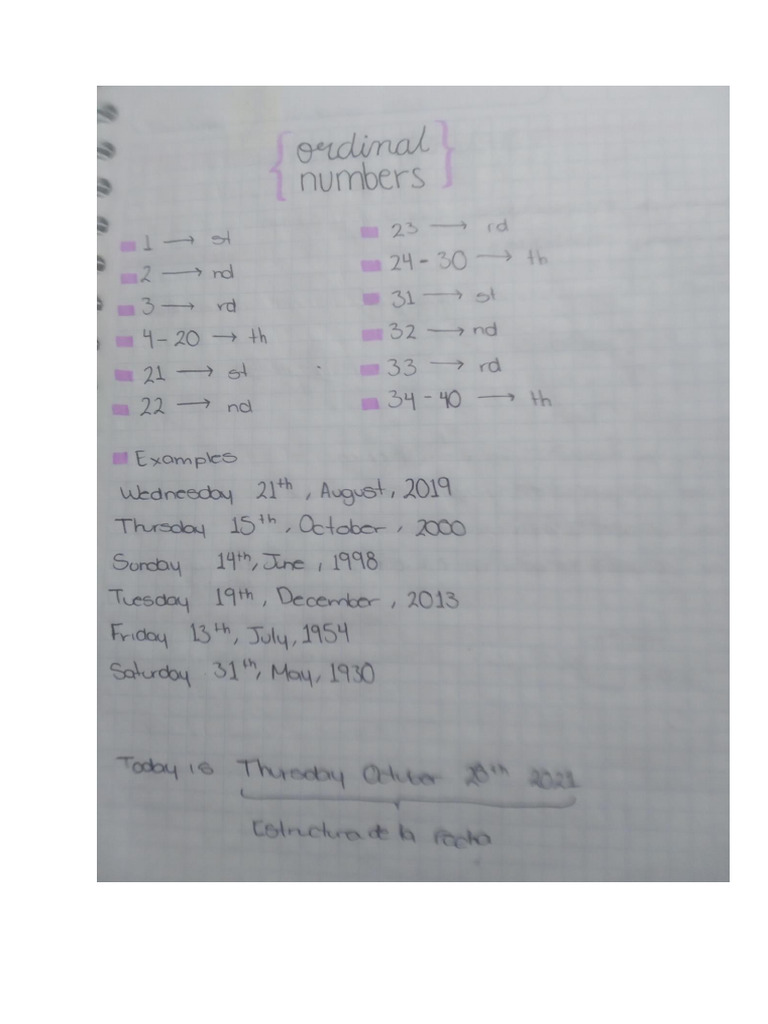 ordinal
numbers
1 → st
2 → nd
3 → rd
4-20 → th
21 → st
22 → nd
23 → rd
24-30 → th
31 → st
32 → nd
33 → rd
34-40 → th
Examples
Wednesday 21th, August, 2019
Thursday 15th, October, 2000
Sunday 14th, June, 1998
Tuesday 19th, December, 2013
Friday 13th, July, 1954
Saturday 31th, May, 1930
Today is Thursday October 28th 2021
Estructura de la fecha